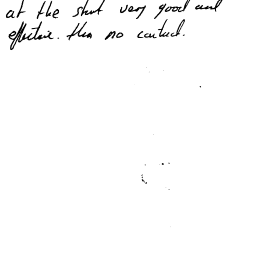 at the start very good and
effective. then no contact.